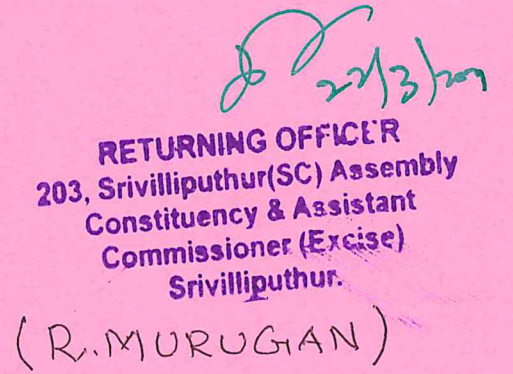 22/3/2021
RETURNING OFFICER
203, Srivilliputhur(SC) Assembly
Constituency & Assistant
Commissioner (Excise)
Srivilliputhur.
(R.MURUGAN)